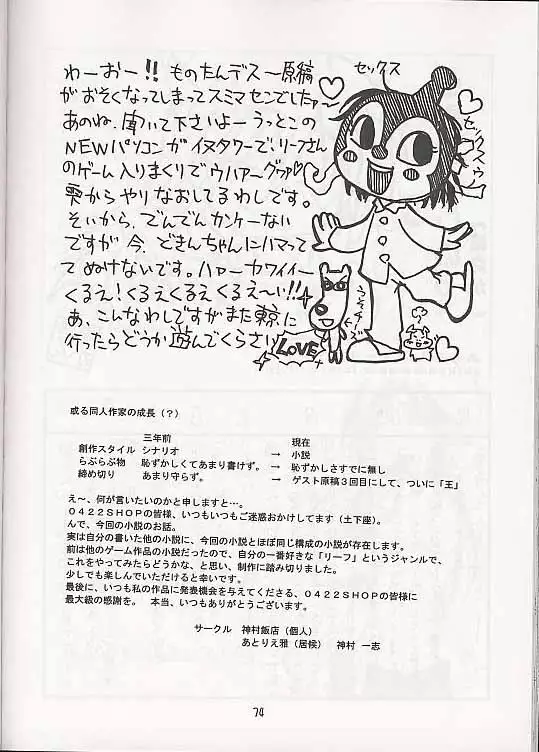 わーおー!! ものたんデス〜原稿
がおそくなってしまってスミマセンでしたァ〜
あのね、聞いて下さいよー うっとこの
NEWパソコンがイヌタワーで、リーフさん
のゲーム入りまくりでウハァ〜グゥァ♡
雫からやりなおしてるわしです。
そいから、でんでんカンケーない
ですが 今、どきんちゃんにハマって
てぬけないです。ハァーカワイイー
くるえ!くるえくるえ くるえ〜い!!
あ、こんなわしですがまた東京に
行ったらどうか遊んでくらさい
セックス
セックスゥン
LOVE
或る同人作家の成長(?)
三年前 現在
創作スタイル シナリオ → 小説
らぶらぶ物 恥ずかしくてあまり書けず。 → 恥ずかしさすでに無し
締め切り あまり守らず。 → ゲスト原稿3回目にして、ついに「王」
え〜、何が言いたいのかと申しますと…。
0422SHOPの皆様、いつもいつもご迷惑おかけしてます(土下座)。
んで、今回の小説のお話。
実は自分の書いた他の小説に、今回の小説とほぼ同じ構成の小説が存在します。
前は他のゲーム作品の小説だったので、自分の一番好きな「リーフ」というジャンルで、
これをやってみたらどうかな、と思い、制作に踏み切りました。
少しでも楽しんでいただけると幸いです。
最後に、いつも私の作品に発表機会を与えてくださる、0422SHOPの皆様に
最大級の感謝を。 本当、いつもありがとうございます。
サークル 神村飯店(個人)
あとりえ雅(居候) 神村 一志
74